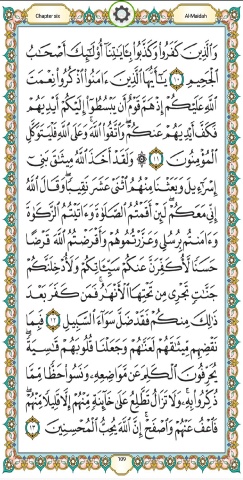 Chapter six Al-Maidah
وَالَّذِينَ كَفَرُوا وَكَذَّبُوا بِآيَاتِنَا أُولَٰئِكَ أَصْحَابُ
الْجَحِيمِ ١٠ يَا أَيُّهَا الَّذِينَ آمَنُوا اذْكُرُوا نِعْمَتَ
اللَّهِ عَلَيْكُمْ إِذْ هَمَّ قَوْمٌ أَنْ يَبْسُطُوا إِلَيْكُمْ أَيْدِيَهُمْ
فَكَفَّ أَيْدِيَهُمْ عَنْكُمْ وَاتَّقُوا اللَّهَ وَعَلَى اللَّهِ فَلْيَتَوَكَّلِ
الْمُؤْمِنُونَ ١١ وَلَقَدْ أَخَذَ اللَّهُ مِيثَاقَ بَنِي
إِسْرَائِيلَ وَبَعَثْنَا مِنْهُمُ اثْنَيْ عَشَرَ نَقِيبًا وَقَالَ اللَّهُ
إِنِّي مَعَكُمْ لَئِنْ أَقَمْتُمُ الصَّلَاةَ وَآتَيْتُمُ الزَّكَاةَ
وَآمَنْتُمْ بِرُسُلِي وَعَزَّرْتُمُوهُمْ وَأَقْرَضْتُمُ اللَّهَ قَرْضًا
حَسَنًا لَأُكَفِّرَنَّ عَنْكُمْ سَيِّئَاتِكُمْ وَلَأُدْخِلَنَّكُمْ
جَنَّاتٍ تَجْرِي مِنْ تَحْتِهَا الْأَنْهَارُ فَمَنْ كَفَرَ بَعْدَ
ذَٰلِكَ مِنْكُمْ فَقَدْ ضَلَّ سَوَاءَ السَّبِيلِ ١٢ فَبِمَا
نَقْضِهِمْ مِيثَاقَهُمْ لَعَنَّاهُمْ وَجَعَلْنَا قُلُوبَهُمْ قَاسِيَةً
يُحَرِّفُونَ الْكَلِمَ عَنْ مَوَاضِعِهِ وَنَسُوا حَظًّا مِمَّا
ذُكِّرُوا بِهِ وَلَا تَزَالُ تَطَّلِعُ عَلَىٰ خَائِنَةٍ مِنْهُمْ إِلَّا قَلِيلًا مِنْهُمْ
فَاعْفُ عَنْهُمْ وَاصْفَحْ إِنَّ اللَّهَ يُحِبُّ الْمُحْسِنِينَ ١٣
109